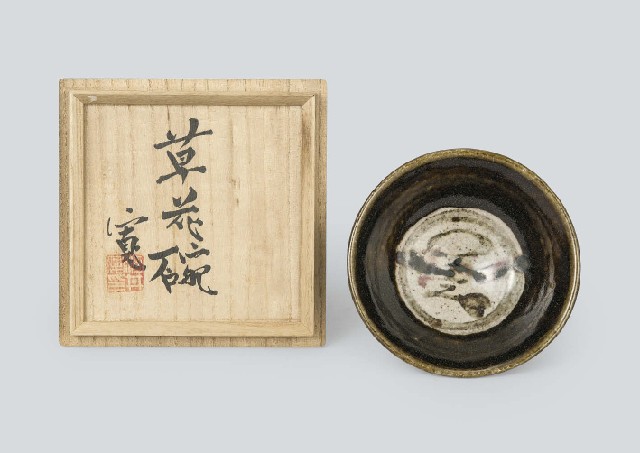 草花碗
寛